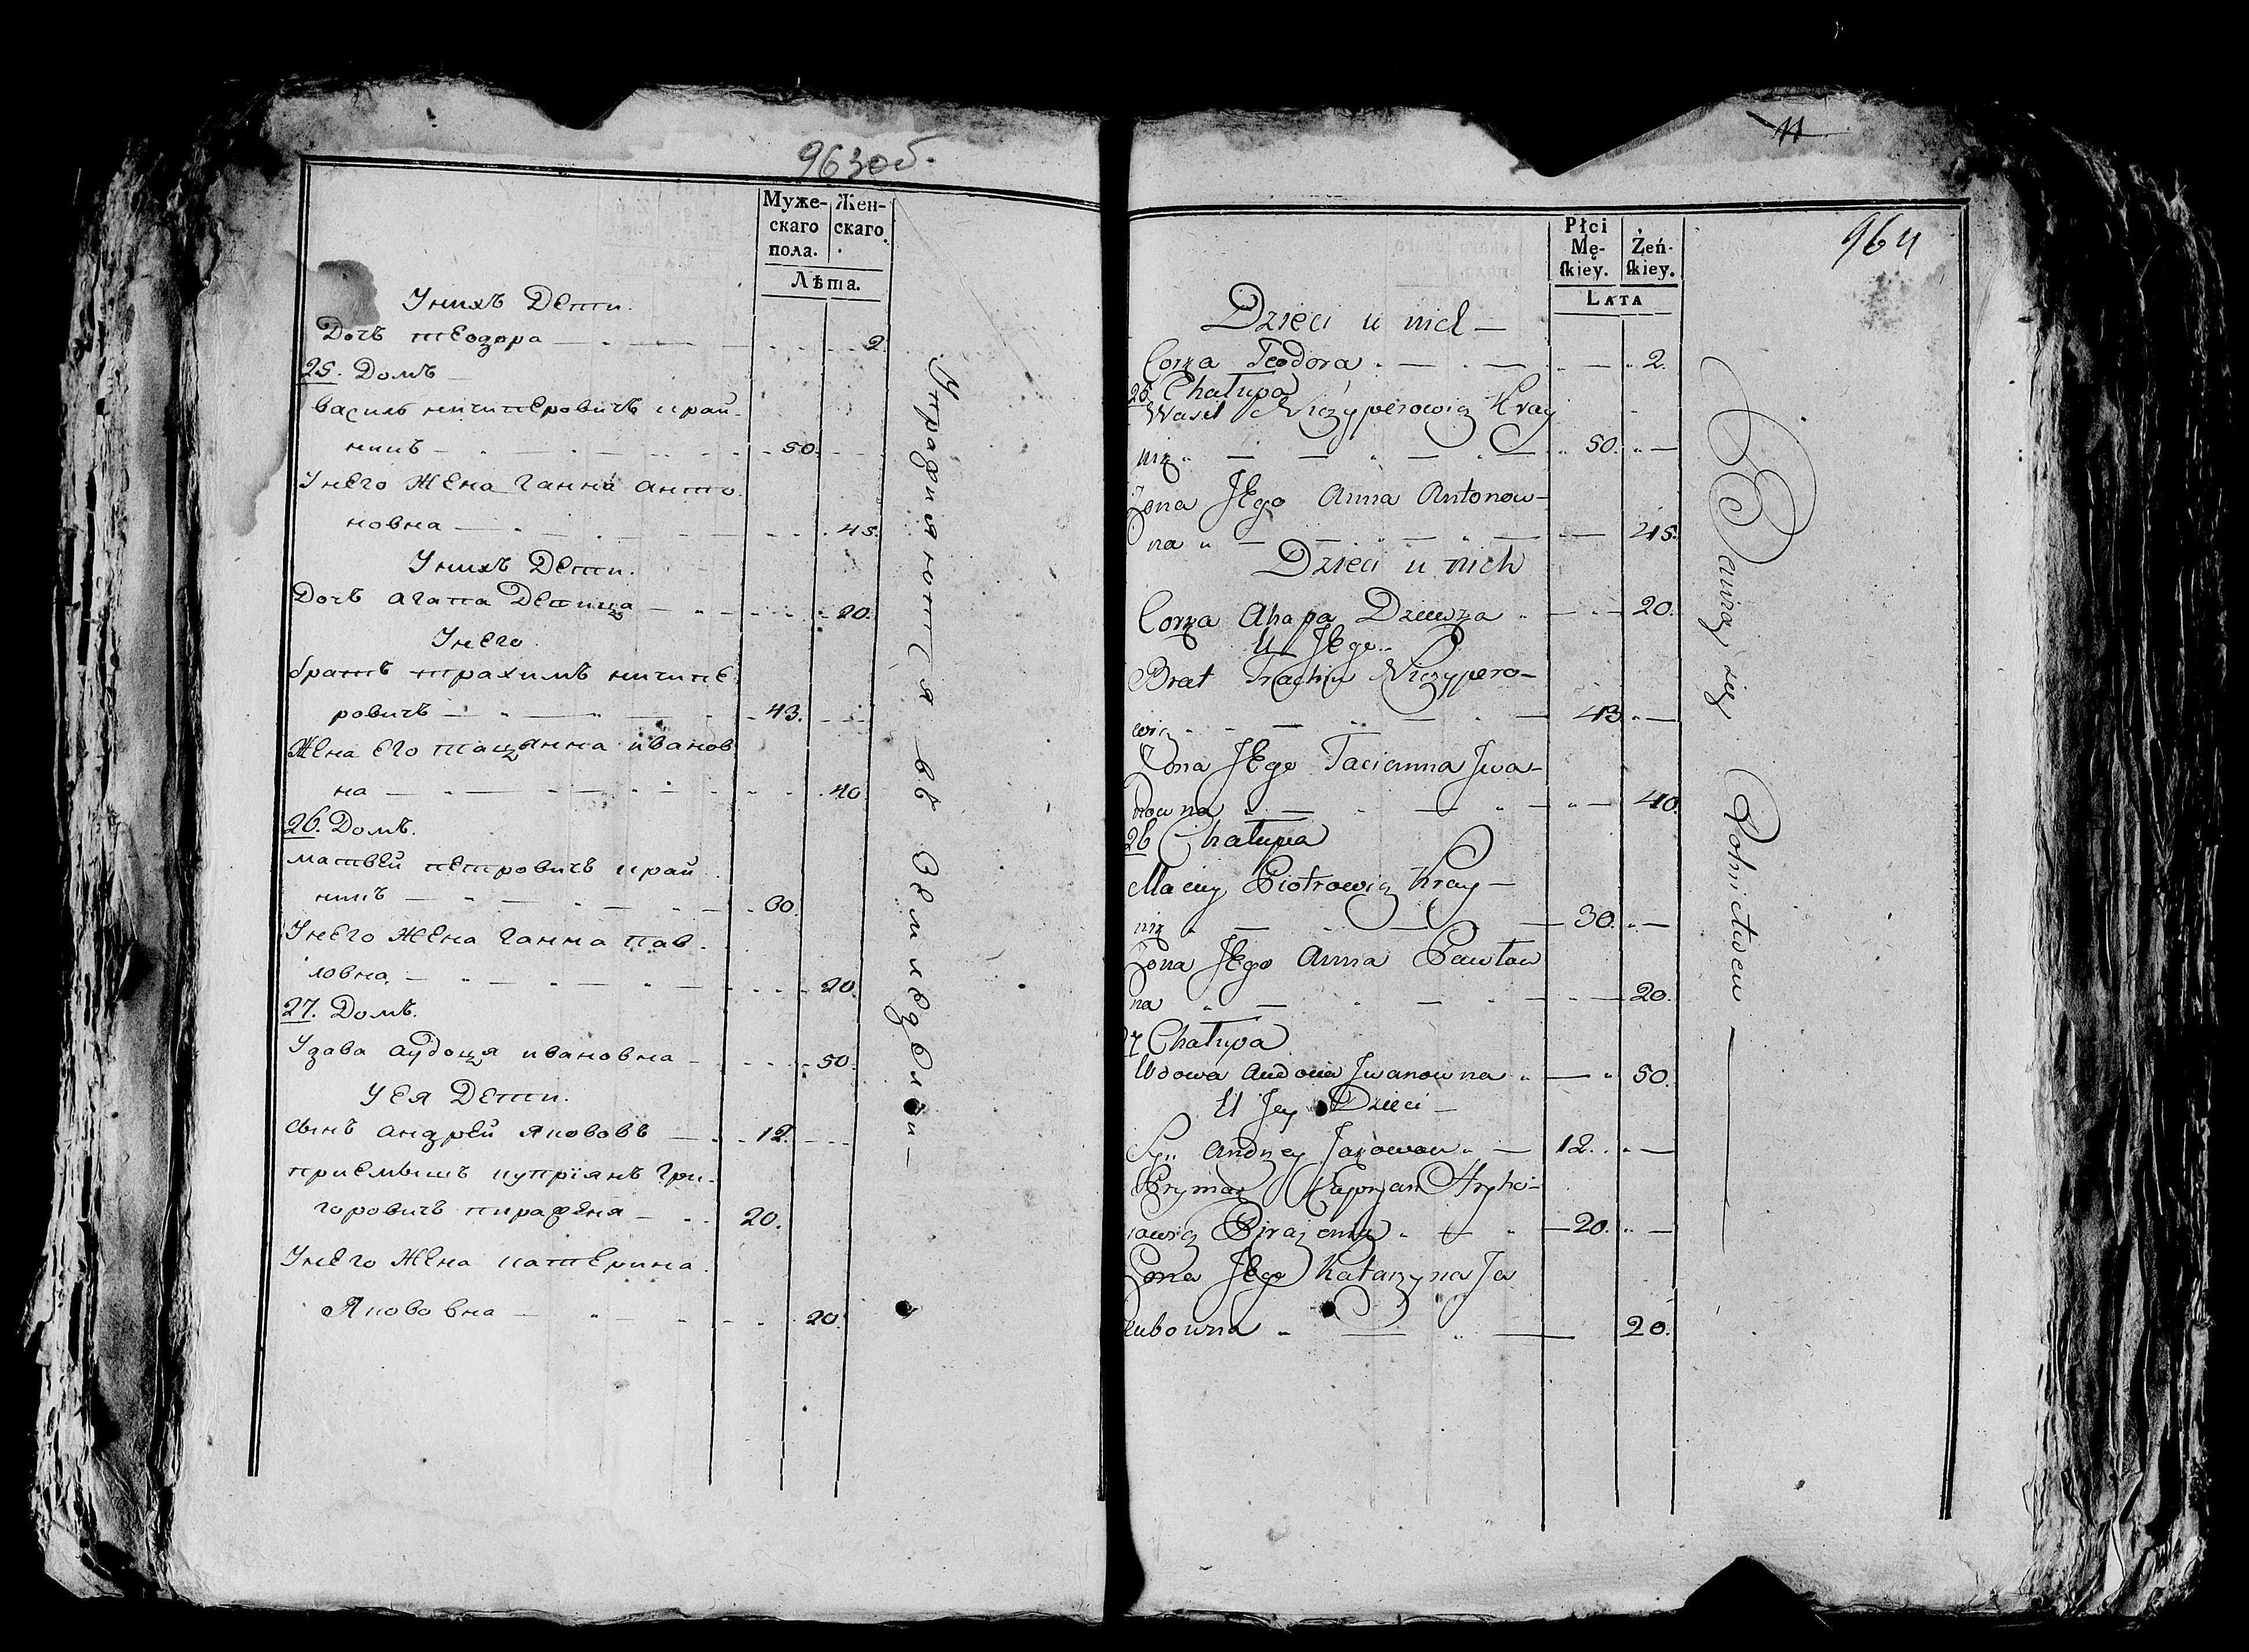 963об.
Муже-
скаго
пола.
Жен-
скаго.
Лѣта.
Унихъ Дети.
Дочъ теодора — 2
25. Домъ —
василь ничиперовичъ край-
ницъ — 50.
Унего Жена Ганна анто-
новна — 45.
Унихъ Дети.
Дочъ агапа Девица — 20.
Унего.
братъ трахимъ ничипе
ровичъ — 43.
Жена Его тацянна иванов
на — 40.
26. Домъ.
матвей петровичъ край
ницъ — 30.
Унего Жена Ганна пав-
ловна — 20.
27. Домъ.
Удава аудоця ивановна — 50.
Уея Дети.
сынъ андрей якововъ — 12.
приемышъ куприянъ Гри-
горовичъ — 20.
Унего Жена катерина
Якововна — 20.
Упражняются въ Земледѣлии —
11
964
Płci
Mę-
skiey.
Żeń-
skiey.
Lata
Dzieci u nich —
Corka Teodora — 2.
25 Chałupa
Wasil Niczyperowicz Kray
nic — 50. —
Zona Jego Anna Antonow-
na — 45.
Dzieci u nich
Corka Ahapa Dziewka — 20.
U Jego —
Brat Trachim Niczypero-
wicz — 43 —
Zona Jego Tacianna Jwa-
nowna — 40.
26 Chałupa
Maciey Piotrowicz Kray-
nic — 30. —
Zona Jego Anna Pawłow
na — 20.
27 Chałupa
Wdowa Audocia Jwanowna — 50.
U Jey Dzieci —
Syn Andrzey Jakowow — 12. —
Prymak Kupryan Hryho-
rowicz — 20. —
Zona Jego Katarzyna Ja
kubowna — 20.
Bawią się Rolnictwem —